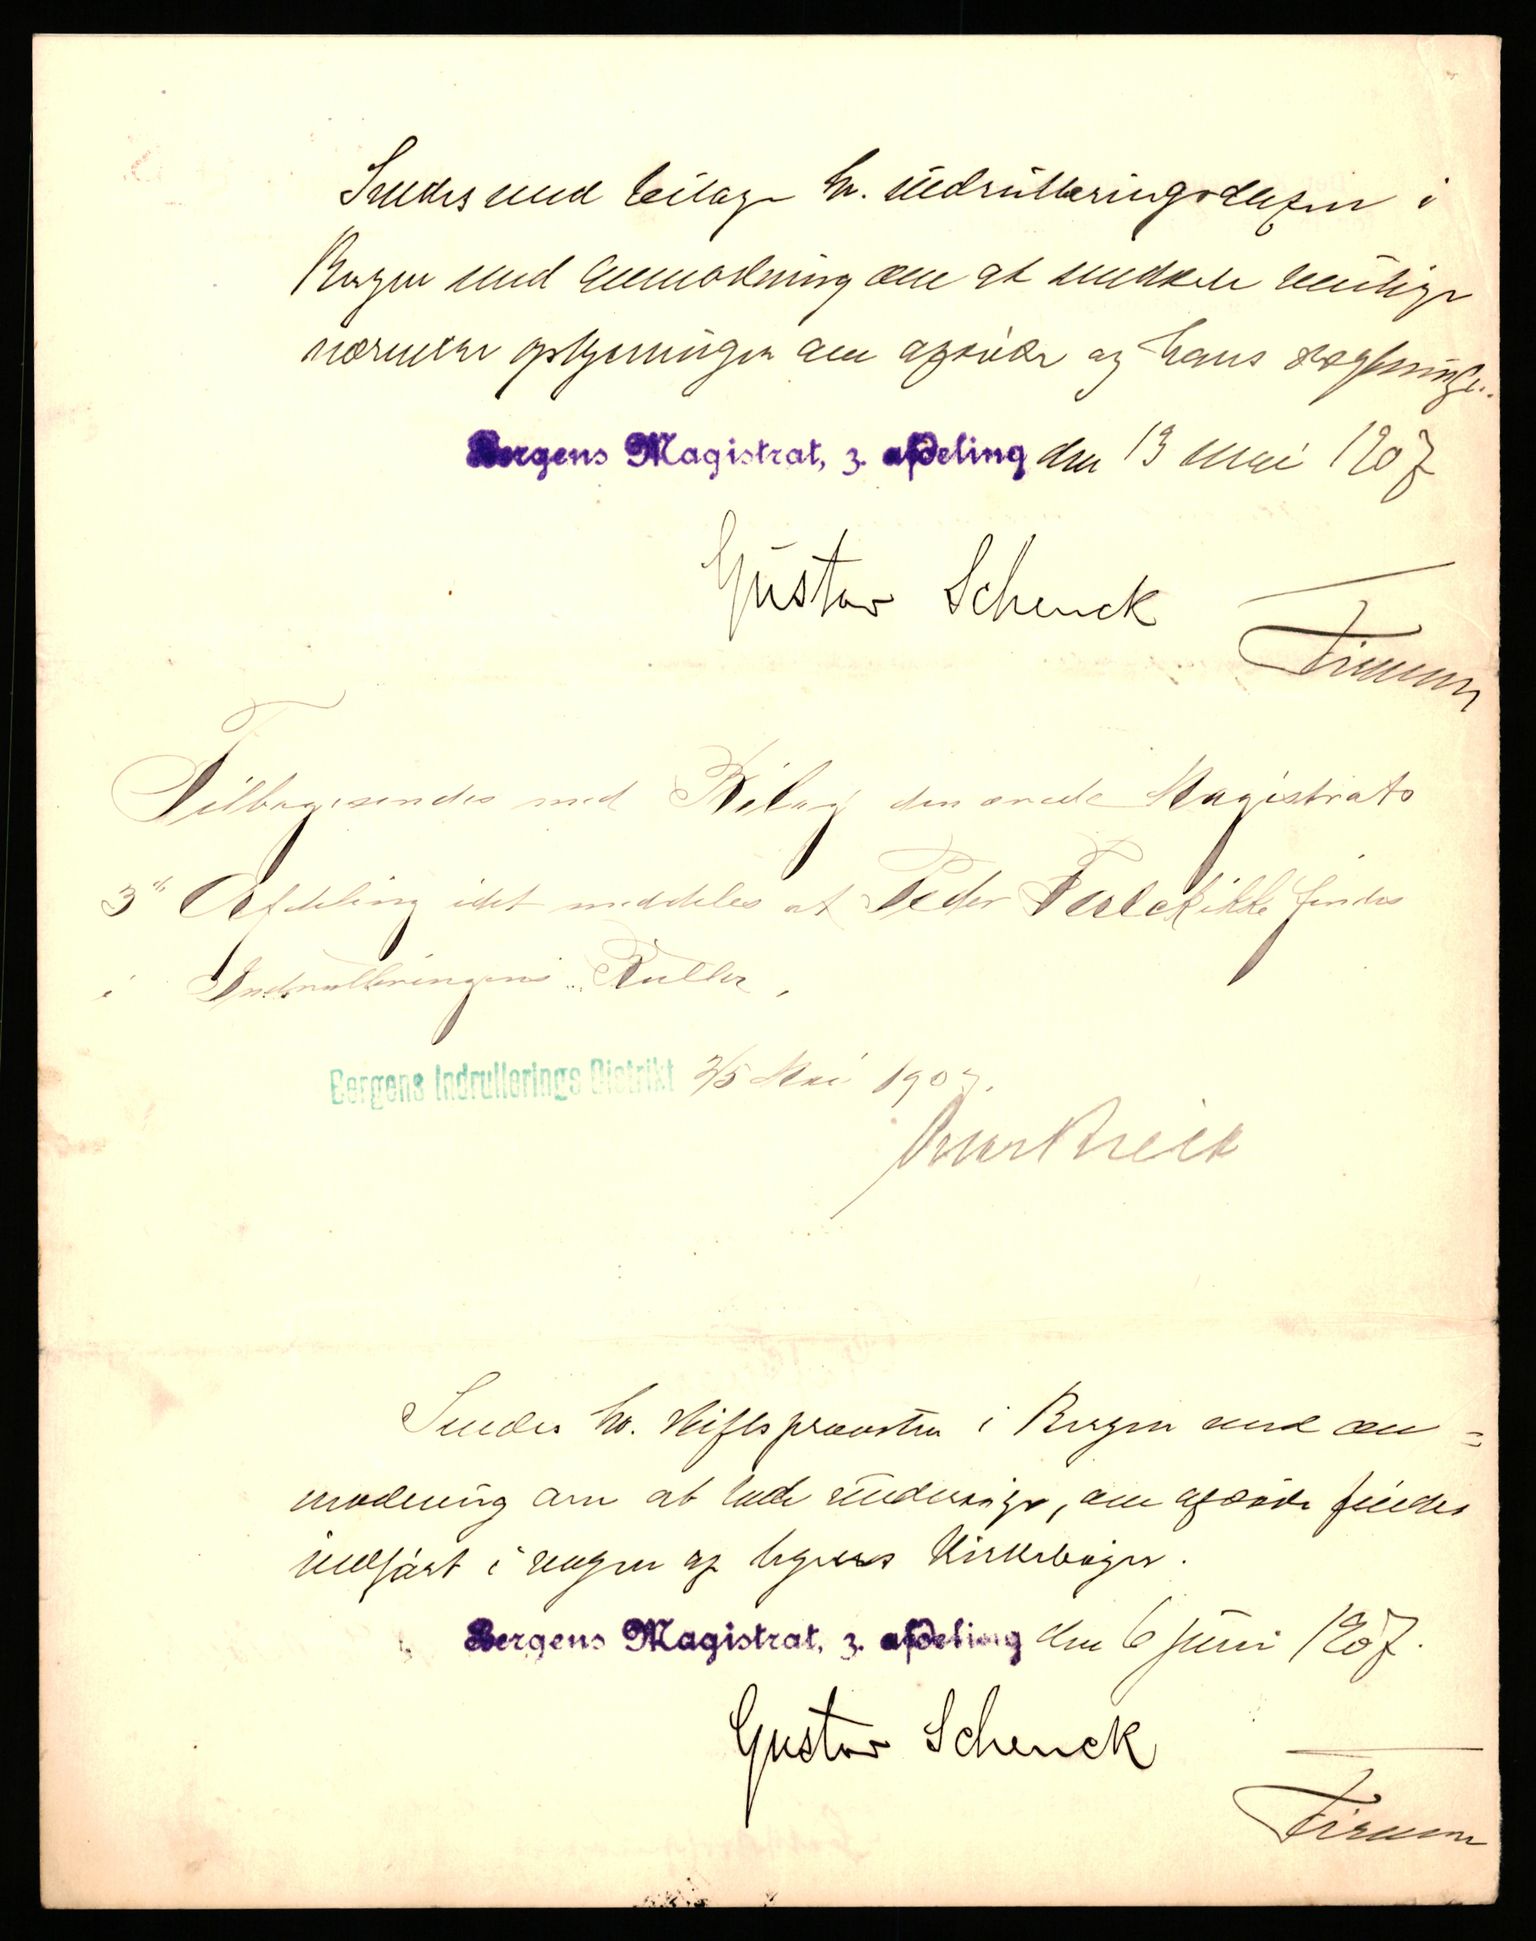 Sendes med bilage hr. Indrulleringschefen i
Bergen med anmodning om at meddele mulige
nærmere oplysninger om afdøde og hans slægtninge.
Bergens Magistrat, 3. afdeling den 13 mai 1907
Gustav Schenck
Tilbagesendes med Bilag den ærede Magistrats
3die Afdeling idet meddeles at Peder Falck ikke findes
i Indrulleringens Ruller.
Bergens Indrullerings Distrikt 2/5 Mai 1907.
Sendes hr. stiftsprovsten i Bergen med an=
modning om at lade undersøge, om afdøde findes
indført i nogen af byens kirkebøger.
Bergens Magistrat, 3. afdeling den 6 juni 1907.
Gustav Schenck